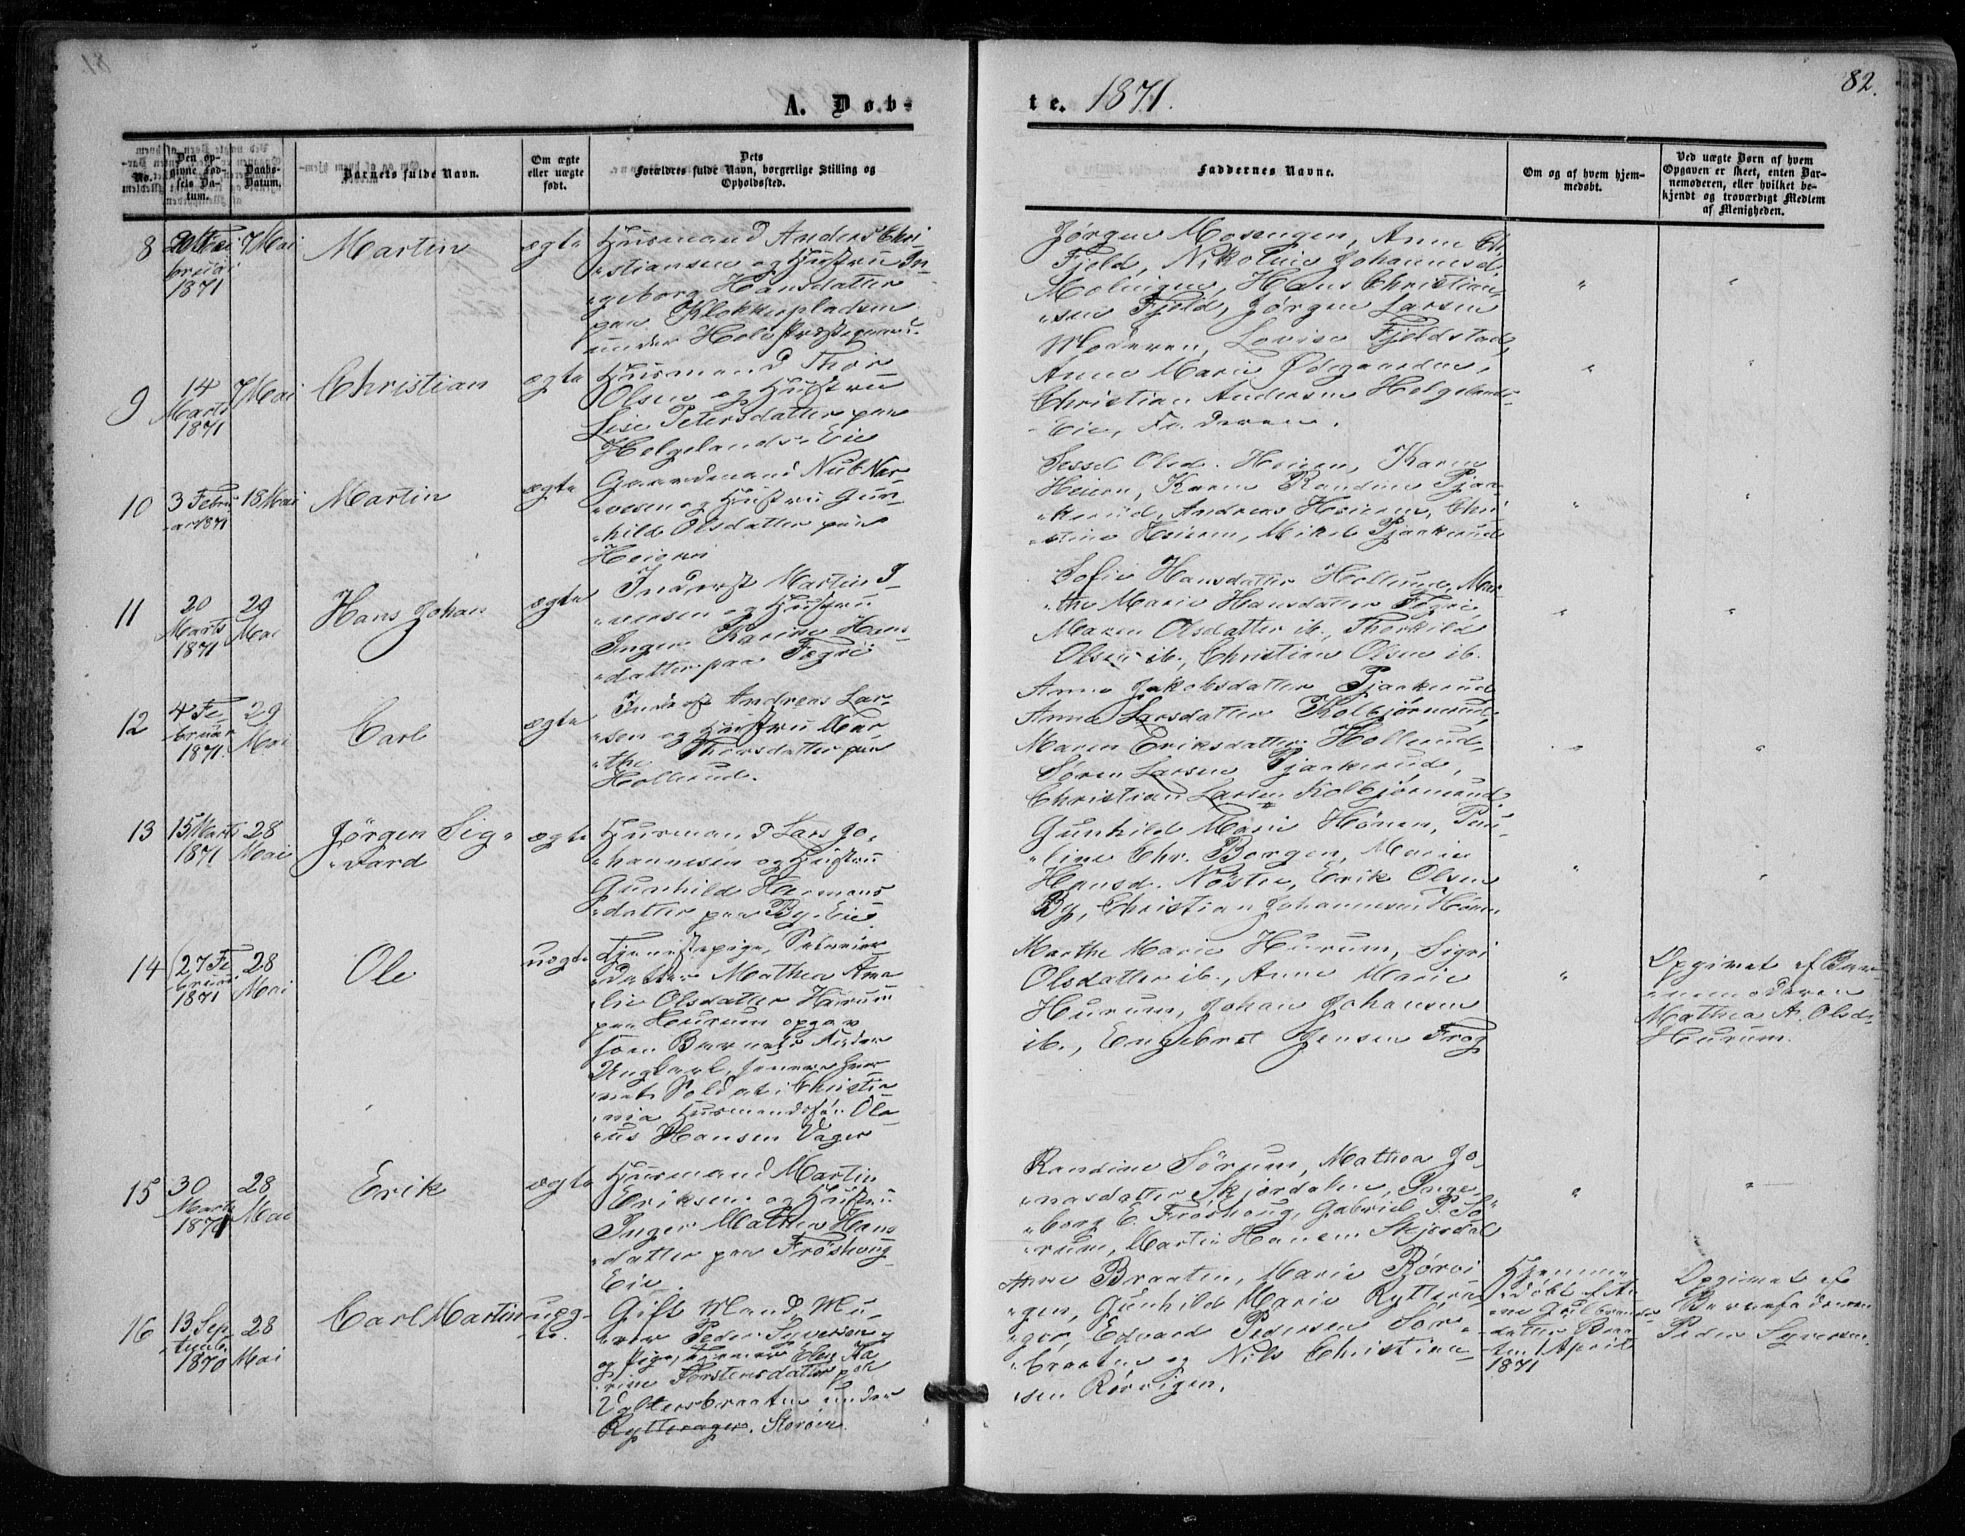 82.
A. Døb-
te. 1871.
No.
Den op-
givne Fød-
sels Da-
tum.
Daabs-
Datum.
Barnets fulde Navn.
Om ægte
eller uægte
født.
Dets
Forældres fulde Navn, borgerlige Stilling og
Opholdssted.
Faddernes Navne.
Om og af hvem hjem-
medøbt.
Ved uægte Børn af hvem
Opgaven er skeet, enten Bar-
nemoderen, eller hvilket be-
kjendt og troværdigt Medlem
af Menigheden.
8
bruar
1871
7 Mai
Martin
ægte
Husmand Anders Chri-
stiansen og Hustru In-
geborg Hansdatter
paa Klokkerpladsen
under Hole Præstegaard.
Jørgen Mosengen, Anne Chr.
Fjeld, Nikoline Johannesd.
Hans Christian-
sen Fjeld, Jørgen Larsen
9
14
Marts
1871
7 Mai
Christian
ægte
Husmand Thor
Olsen og Hustru
Lise Petersdatter paa
Helgelands-Eie
Moderen, Lovise Fjeldstad,
Anne Marie Ødegaarden,
Christian Andersen Helgelands-
Eie, Faderen.
10
3 Febru
ar 1871
18 Mai
Martin
ægte
Gaardmand Nub Nar-
vesen og Hustru Gun-
hild Olsdatter paa
Heieren
Sessel Olsd. Heieren, Karen
Heieren, Karen Randine Pjaa-
kerud, Andreas Heieren, Chri
stine Heieren, Mikel Pjaakerud
11
20
Marts
1871
29
Mai
Hans Johan
ægte
Inderst Martin I-
versen og Hustru
Inger Karine Hans
datter paa Fægri
Sofie Hansdatter Hollerud, Mar
the Marie Hansdatter Fægri,
Maren Olsdatter ib., Thorkild
Olsen ib., Christian Olsen ib.
12
4 Fe
bruar
1871.
29
Mai
Carl
ægte
Inderst Andreas Lar-
sen og Hustru Mar-
the Thorsdatter paa
Hollerud.
Anne Jakobsdatter Pjaakerud
Anne Larsdatter Kolbjørnrud,
Maren Eriksdatter Hollerud,
Søren Larsen Pjaakerud,
Christian Larsen Kolbjørnrud
13
15 Marts
1871
28
Mai
Jørgen Sig-
vard
ægte
Husmand Lars Jo-
hannesen og Hustru
Gunhild Hermans
datter paa By-Eie
Gunhild Marie Hønen, Pau
line Chr. Borgen, Marie
Hansd. Nøste, Erik Olsen
By, Christian Johannesen Hønen
14
27 Fe
bruar
1871
28
Mai
Ole
uægte
Tjenestepige, Selveier
Datter Mathea Ama
lie Olsdatter Hurum
paa Hurum opgav
som Barnefader
Ungkarl, forever
Soldat i Christia
nia Husmandssøn Ola
us Hansen Vager
Marthe Marie Hurum, Sigri
Olsdatter ib., Anne Marie
Hurum, Johan Johansen
ib., Engebret Jensen Frøg
Opgivet af Bar
nemoderen
Mathea A. Olsd.
Hurum.
15
30
Marts
1871
28
Mai
Erik
ægte
Husmand Martin
Eriksen og Hustru
Inger Mathea Hans
datter paa Frøshoug
Eie.
Randine Sørum, Mathea Jo
nasdatter Skjørdalen, Inge
borg E. Frøshoug, Gabriel P. Sø
rum, Martin Hansen Skjørdal
16
13 Sep-
temb.
1870
28
Mai
Carl Martin
uæg-
te.
Gift Mand, Mu-
rer Peder Syversen
og Pige, Elen Ka
rine Torstensdatter paa
under
Rytterager. Storøen.
Anne Braaten, Marie Rørvi
gen, Gunhild Marie Ryttera
ger, Edvard Pedersen
braaten og Nils Christian-
sen Rørvigen.
Hjemme
døbt af An
ne Gulbrands-
datter Braa-
ten 1 April
1871
Opgivet af
Barnefaderen
Peder Syversen